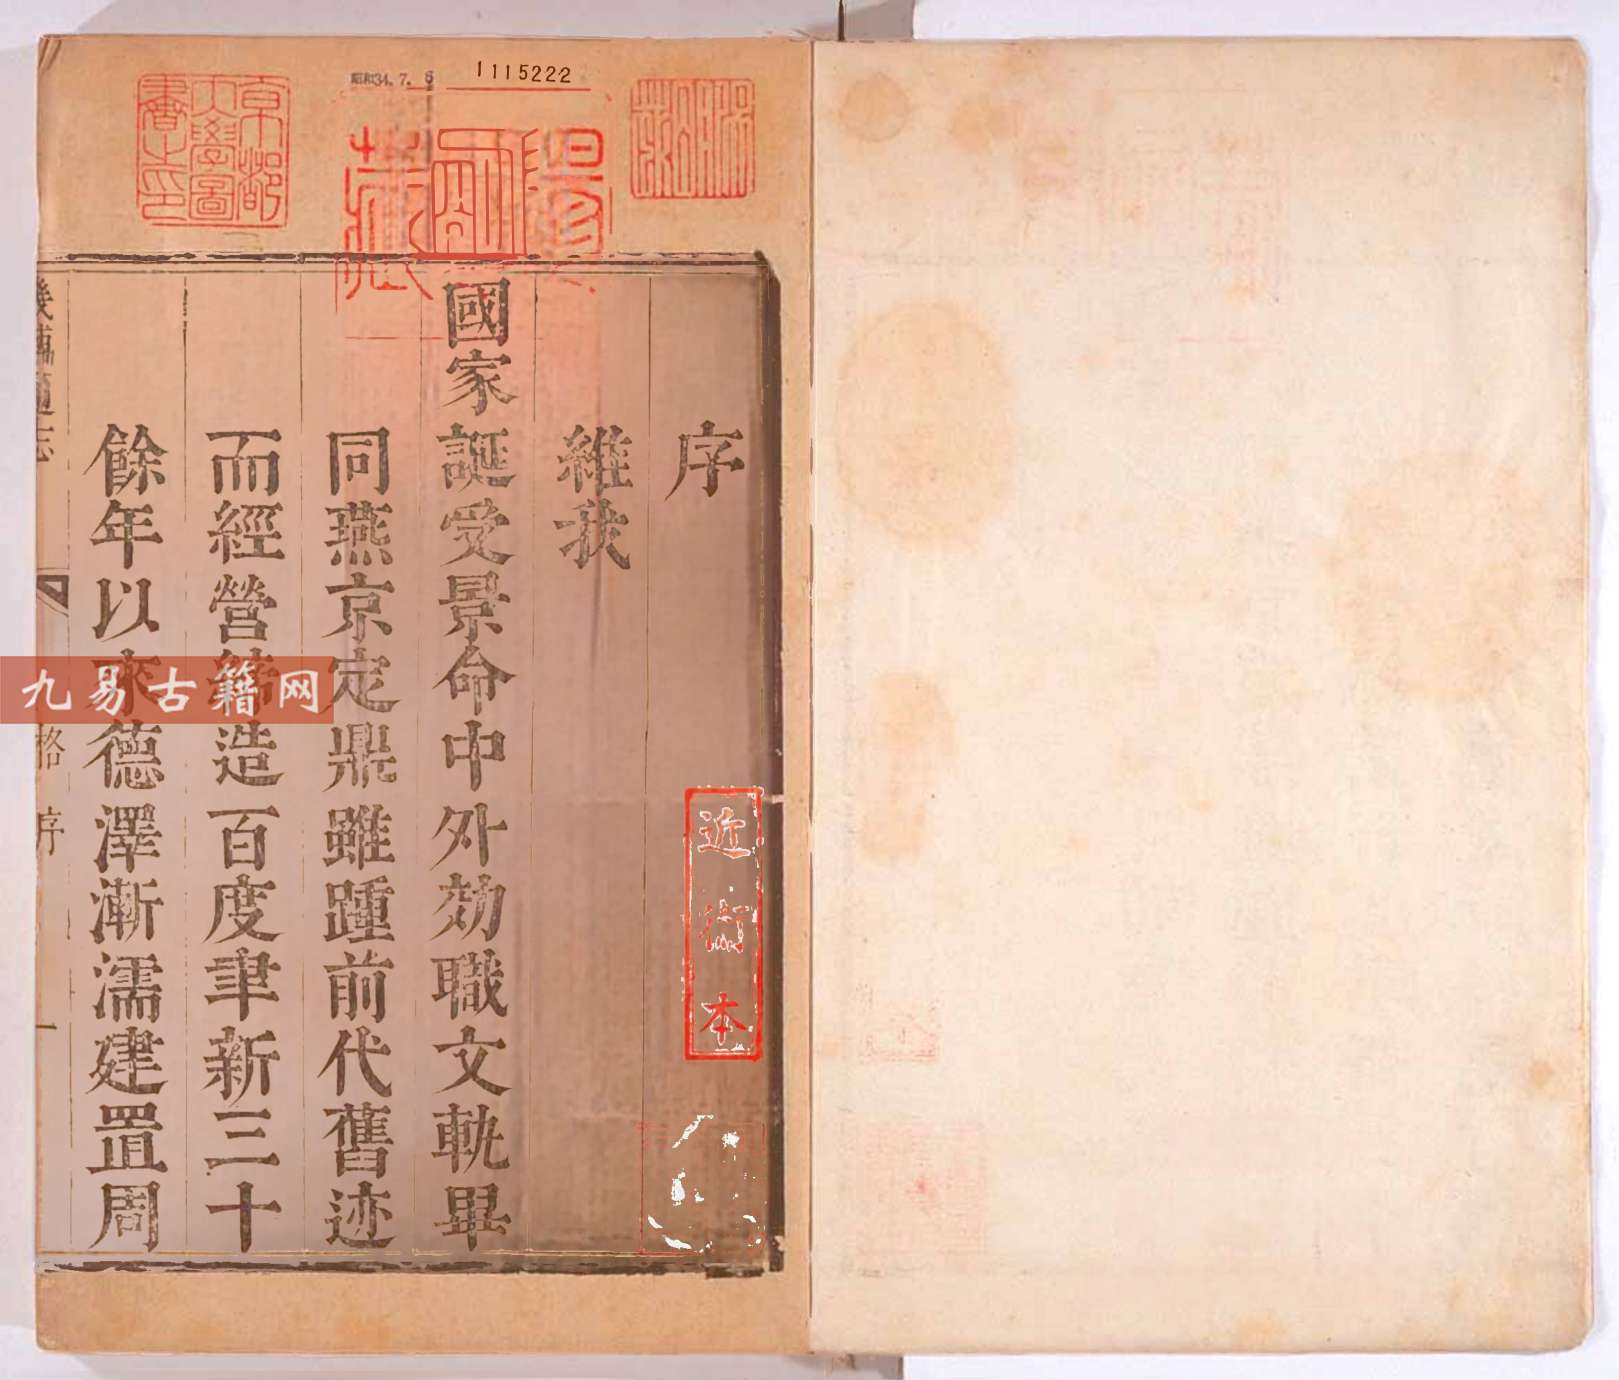 昭和34.7.6
1115222
京都
大學圖
書之印
藏
序
維我
國家誕受景命中外効職文軌畢
同燕京定鼎雖踵前代舊迹
而經營造百度聿新三十
餘年以來德澤漸濡建置周
畿輔通志
格
序
一
近衛本
九易古籍网